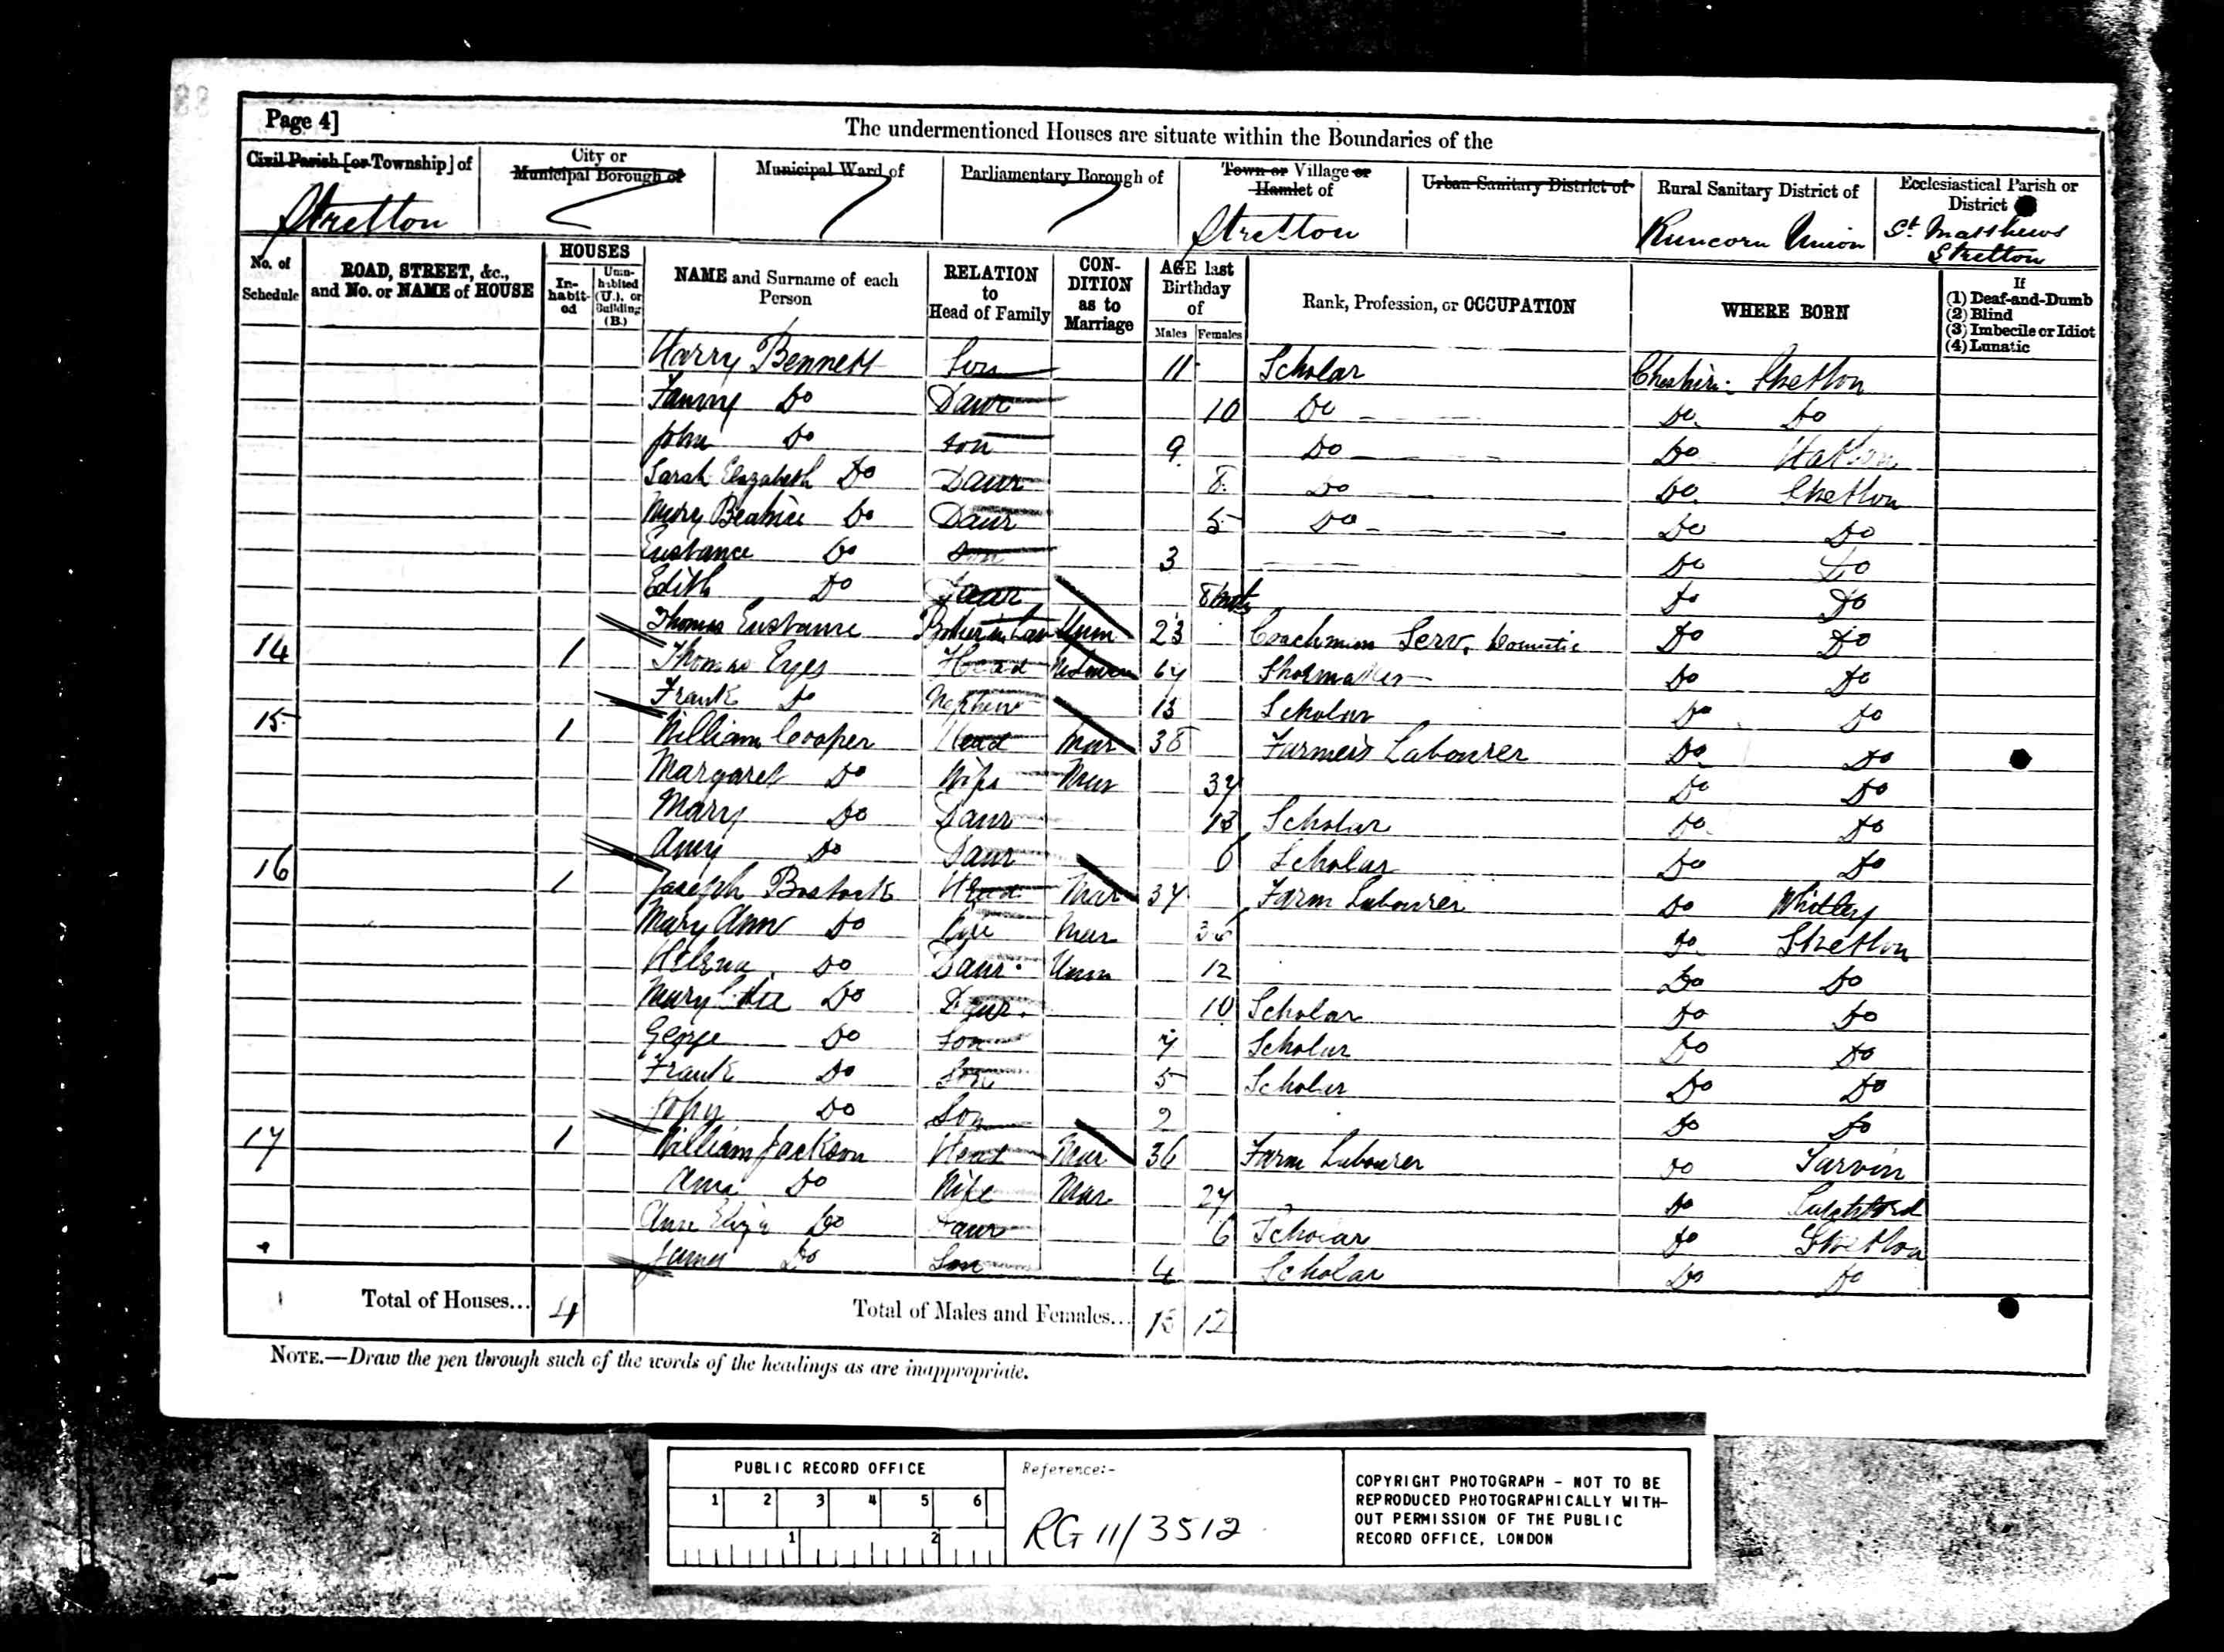 Page 4]
The undermentioned Houses are situate within the Boundaries of the
Civil Parish [or Township] of
City or Municipal Borough of
Municipal Ward of
Parliamentary Borough of
Town or Village or Hamlet of
Urban Sanitary District of
Rural Sanitary District of
Ecclesiastical Parish or District
Stretton
Stretton
Runcorn Union
St. Matthews Stretton
No. of Schedule
ROAD, STREET, &c., and No. or NAME of HOUSE
HOUSES
In-habit-ed
Unin-habited (U.), or Building (B.)
NAME and Surname of each Person
RELATION to Head of Family
CON-DITION as to Marriage
AGE last Birthday of
Males
Females
Rank, Profession, or OCCUPATION
WHERE BORN
If
(1) Deaf-and-Dumb
(2) Blind
(3) Imbecile or Idiot
(4) Lunatic
Harry Bennett Son 11 Scholar Cheshire Stretton
Fanny Do Daur 10 Do Do Do
John Do Son 9 Do Do Hatton
Sarah Elizabeth Do Daur 8 Do Do Stretton
Mary Beatrice Do Daur 5 Do Do Do
Eustance Do Son 3 Do Do
Edith Do Daur 8 Do Do
Thomas Eustance Brother in Law Unm 23 Coachman Serv. Domestic Do Do
14 1 Thomas Eyes Head Shoemaker Do Do
Frank Do Nephew 13 Scholar Do Do
15 1 William Cooper Head Mar 38 Farmers Labourer Do Do
Margaret Do Wife Mar 37 Do Do
Mary Do Daur 13 Scholar Do Do
Amy Do Daur 6 Scholar Do Do
16 1 Joseph Bostock Head Mar 37 Farm Labourer Do Whitley
Mary Ann Do Wife Mar 36 Do Stretton
Helena Do Daur Unm 12 Do Do
Mary Do Daur 10 Scholar Do Do
George Do Son 7 Scholar Do Do
Frank Do Son 5 Scholar Do Do
John Do Son 2 Do Do
17 1 William Jackson Head Mar 36 Farm Labourer Do Tarvin
Do Wife Mar 27 Do
Ann Eliza Do Daur 6 Scholar Do Stretton
James Do Son 4 Scholar Do Do
Total of Houses... 4
Total of Males and Females... 13 12
NOTE.—Draw the pen through such of the words of the headings as are inappropriate.
PUBLIC RECORD OFFICE
1 2 3 4 5 6
1 2
Reference:-
RG 11/3512
COPYRIGHT PHOTOGRAPH - NOT TO BE
REPRODUCED PHOTOGRAPHICALLY WITH-
OUT PERMISSION OF THE PUBLIC
RECORD OFFICE, LONDON